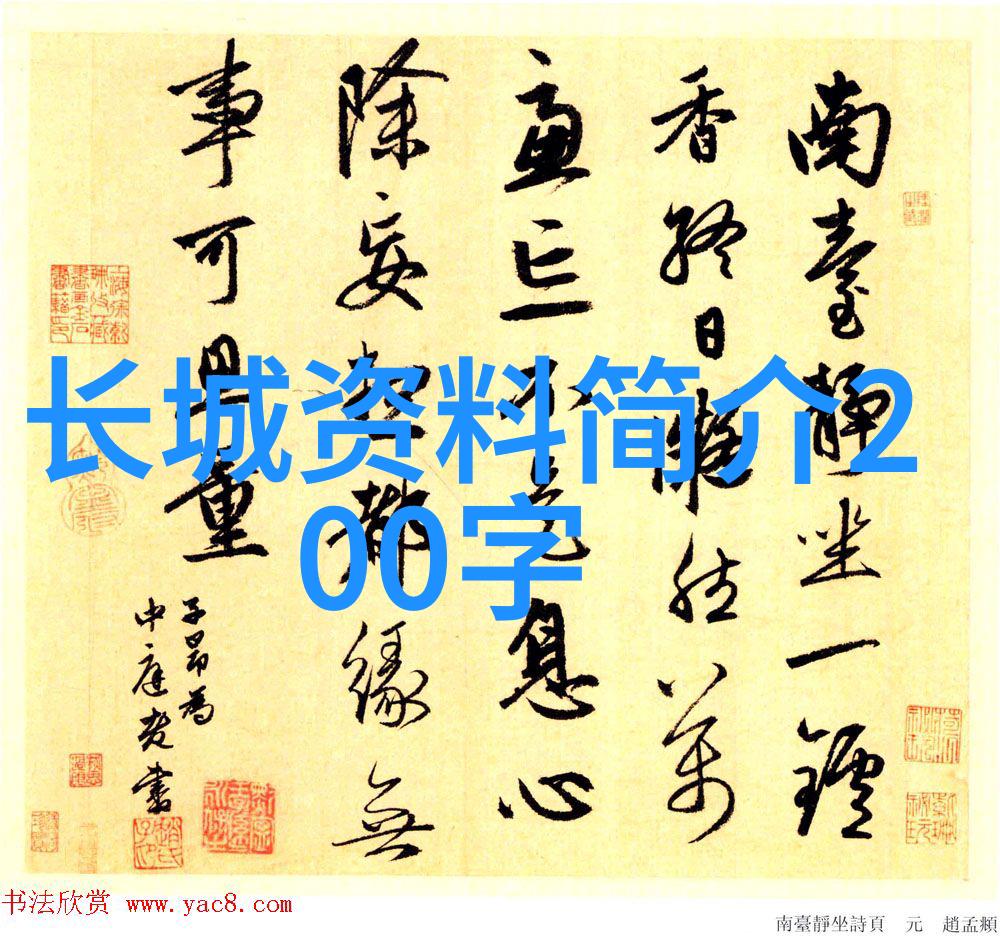 南臺靜坐一鑪
香終日凝然萬
慮亡不是息心
除妄想都緣無
事可思量
子昂為
中庭老書
长城资料简介2
00字
书法欣赏 www.yac8.com
南臺靜坐詩頁 元 趙孟頫